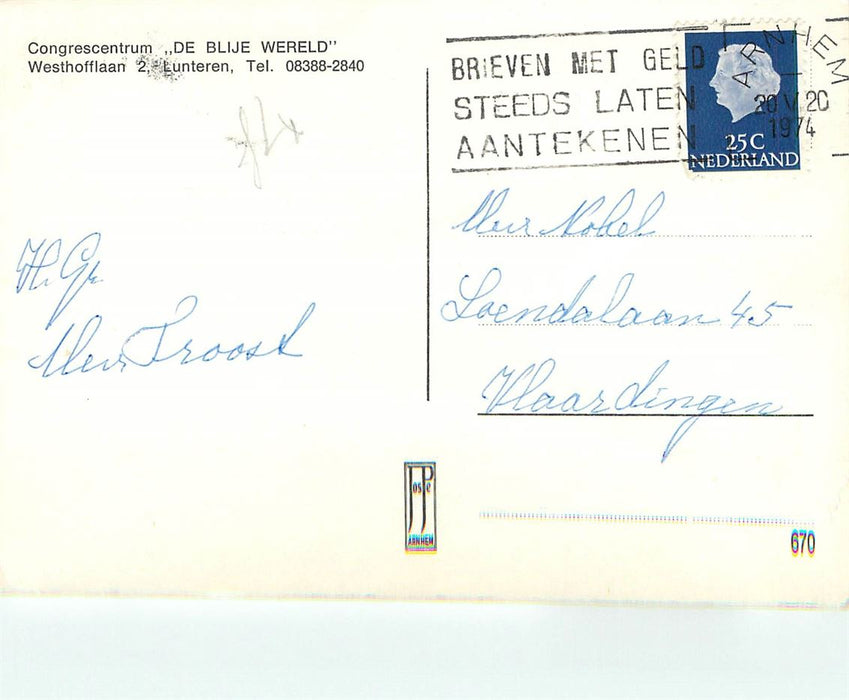 Congrescentrum „DE BLIJE WERELD”
Westhofflaan 2, Lunteren, Tel. 08388-2840
BRIEVEN MET GELD
STEEDS LATEN
AANTEKENEN
ARNHEM
20 V 20
1974
25 C
NEDERLAND
H. Gr.
Mevr Troost
Mevr Nobel
Loendalaan 45
Vlaardingen
JosPe
ARNHEM
670